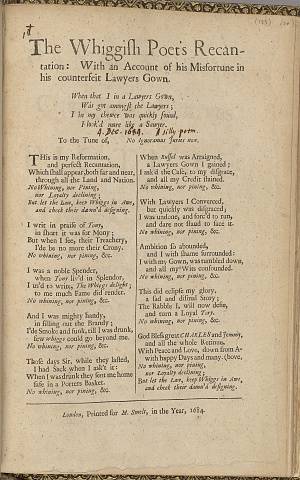 The Whiggish Poets Recan-
tation: With an Account of his Misfortune in
his counterfeit Lawyers Gown.
When that I in a Lawyers Gown,
Was got amongst the Lawyers;
I by my shewes was quickly found,
I look'd more like a Sawyer.
4. Dec. 1684. A silly poem.
To the Tune of, No Ignoramus Juries now.
THis is my Reformation,
and perfect Recantation,
Which shall appear, both far and near,
through all the Land and Nation.
No Whining, nor Pining,
nor Loyalty declining;
But let the Law, keep Whiggs in Awe,
and check their damn'd designing.
I writ in praise of Tony,
in short it was for Mony;
But when I see, their Treachery,
I'de be no more their Crony.
No whining, nor pining, &c.
I was a noble Spender,
when Tony liv'd in Splendor,
I us'd to write, The Whiggs delight;
to me much Fame did render.
No whining, nor pining, &c.
And I was mighty handy,
in filling out the Brandy;
I'de Smoke and funk, till I was drunk,
few whiggs could go beyond me.
No whining, nor pining, &c.
Those days Sir, while they lasted,
I had Sack when I ask't it;
When I was drunk they sent me home
safe in a Porters Basket.
No whining, nor pining, &c.
When Russel was Arraigned,
a Lawyers Gown I gained;
I ask'd the Caose, to my disgrace,
and all my Credit stained.
No whining, nor pining, &c.
With Lawyers I Conversed,
but quickly was disgraced:
I was undone, and forc'd to run,
and dare not stand to face it.
No whining, nor pining, &c.
Ambition so abounded,
and I with shame surrounded:
I with my Gown, was tumbled down,
and all my Wits confounded.
No whining, nor pining, &c.
This did eclipse my glory,
a sad and dismal Story;
The Rabble I, will now defie,
and turn a Loyal Tory.
No whining, nor pining, &c.
God Bless great CHARLES and Jemmy,
and all the whole Retinue.
With Peace and Love, down from A-
with happy Days and many. (bove,
No whining, nor pining,
nor Loyalty declining;
But let the Law, keep Whiggs in Awe,
and check their damn'd designing.
London, Printed for M. Smelt, in the Year, 1684.